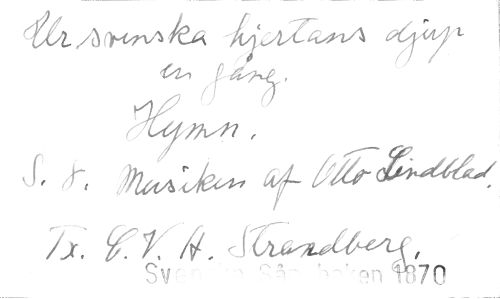 Ur svenska hjertans djup
en gång.
Hymn.
S. 8. Musiken af Otto Lindblad.
Tx. C. V. A. Strandberg.
Svenska Sångboken 1870